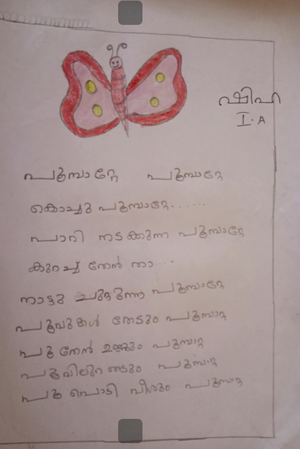 ഷിഫ
I-A
പൂമ്പാറ്റേ പൂമ്പാറ്റേ
കൊച്ചു പൂമ്പാറ്റേ......
പാറി നടക്കുന്ന പൂമ്പാറ്റേ
കുറച്ച് തേൻ താ...
നാട്ടു ചുറ്റുന്ന പൂമ്പാറ്റേ
പൂവുകൾ തേടും പൂമ്പാറ്റ
പൂ തേൻ ഉണ്ണും പൂമ്പാറ്റ
പൂവിലുറങ്ങും പൂമ്പാറ്റ
പൂ പൊടി വീശും പൂമ്പാറ്റ